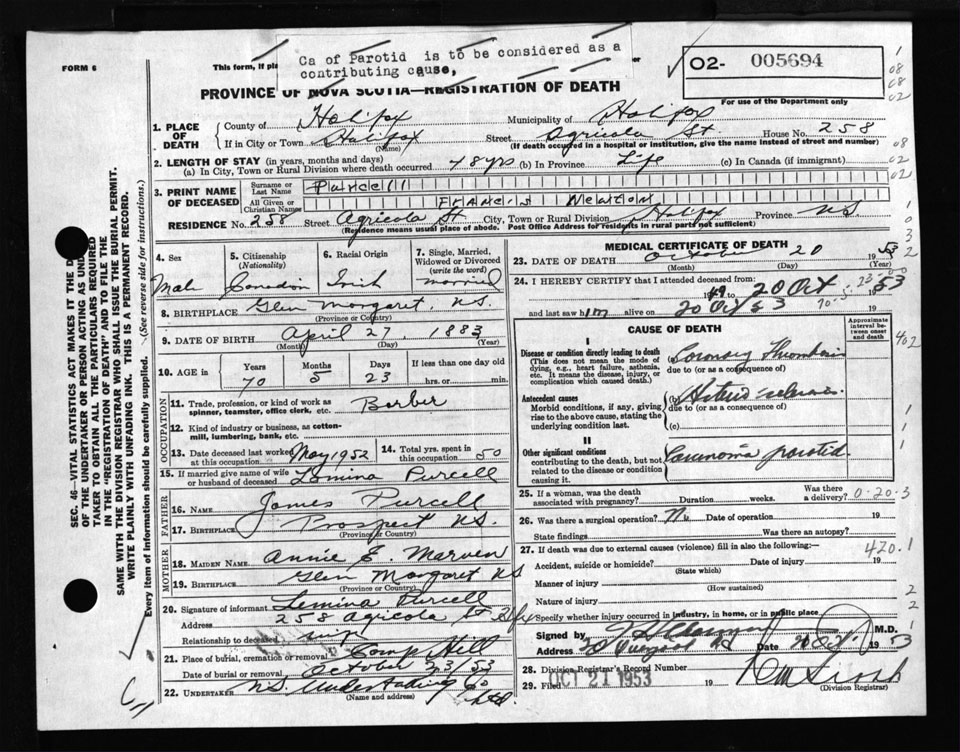 Ca of Parotid is to be considered as a
contributing cause,
FORM 6
This form, if pla
or
O2- 005694
For use of the Department only
PROVINCE OF NOVA SCOTIA—REGISTRATION OF DEATH
1. PLACE OF DEATH
County of Halifax
Municipality of Halifax
If in City or Town Halifax (Name)
Street Agricola St House No. 258
(If death occurred in a hospital or institution, give the name instead of street and number)
2. LENGTH OF STAY (in years, months and days)
(a) In City, Town or Rural Division where death occurred 48 yrs (b) In Province Life (c) In Canada (if immigrant)
3. PRINT NAME OF DECEASED
Surname or Last Name Purcell
All Given or Christian Names Francis Newton
RESIDENCE No. 258 Street Agricola St City, Town or Rural Division Halifax Province N.S.
(Residence means usual place of abode. Post Office Address for residents in rural parts not sufficient)
4. Sex Male
5. Citizenship (Nationality) Canadian
6. Racial Origin Irish
7. Single, Married, Widowed or Divorced (write the word) married
8. BIRTHPLACE Glen Margaret N.S.
(Province or Country)
9. DATE OF BIRTH April 27, 1883
(Month) (Day) (Year)
10. AGE in Years 70 Months 5 Days 23 If less than one day old hrs. or min.
OCCUPATION
11. Trade, profession, or kind of work as spinner, teamster, office clerk, etc. Barber
12. Kind of industry or business, as cotton-mill, lumbering, bank, etc.
13. Date deceased last worked at this occupation May 1952
14. Total yrs. spent in this occupation 50
15. If married give name of wife or husband of deceased Lemina Purcell
FATHER
16. NAME James Purcell
17. BIRTHPLACE Prospect N.S.
(Province or Country)
MOTHER
18. MAIDEN NAME Annie E. Marven
19. BIRTHPLACE Glen Margaret NS
(Province or Country)
20. Signature of informant Lemina Purcell
Address 258 Agricola St Hfx
Relationship to deceased wife
21. Place of burial, cremation or removal Camp Hill
Date of burial or removal October 23/53
22. UNDERTAKER N.S. Undertaking Co Ltd.
(Name and address)
MEDICAL CERTIFICATE OF DEATH
23. DATE OF DEATH October 20 1953
(Month) (Day) (Year)
24. I HEREBY CERTIFY that I attended deceased from:
1949 to 20 Oct 1953
and last saw him alive on 20 Oct 53
70-5-23
CAUSE OF DEATH
Approximate interval between onset and death
I
Disease or condition directly leading to death
(This does not mean the mode of dying, e.g., heart failure, asthenia, etc. It means the disease, injury, or complication which caused death.)
(a) Coronary Thrombosis
due to (or as a consequence of)
Antecedent causes
Morbid conditions, if any, giving rise to the above cause, stating the underlying condition last.
(b) Arterio-sclerosis
due to (or as a consequence of)
(c)
II
Other significant conditions
contributing to the death, but not related to the disease or condition causing it.
Carcinoma parotid
25. If a woman, was the death associated with pregnancy? Duration weeks. Was there a delivery?
0-20-3
26. Was there a surgical operation? No Date of operation 19
State findings Was there an autopsy?
27. If death was due to external causes (violence) fill in also the following:—
420.1
Accident, suicide or homicide? Date of injury 19
(State which)
Manner of injury
(How sustained)
Nature of injury
Specify whether injury occurred in industry, in home, or in public place
Signed by M.D.
Address Date 20 Oct 1953
28. Division Registrar's Record Number
29. Filed OCT 21 1953 19
(Division Registrar)
SEC. 46—VITAL STATISTICS ACT MAKES IT THE D
OF THE UNDERTAKER OR PERSON ACTING AS UND
TAKER TO OBTAIN ALL THE PARTICULARS REQUIRED
IN THE "REGISTRATION OF DEATH" AND TO FILE THE
SAME WITH THE DIVISION REGISTRAR WHO SHALL ISSUE THE BURIAL PERMIT.
WRITE PLAINLY WITH UNFADING INK. THIS IS A PERMANENT RECORD.
Every item of information should be carefully supplied. (See reverse side for instructions.)